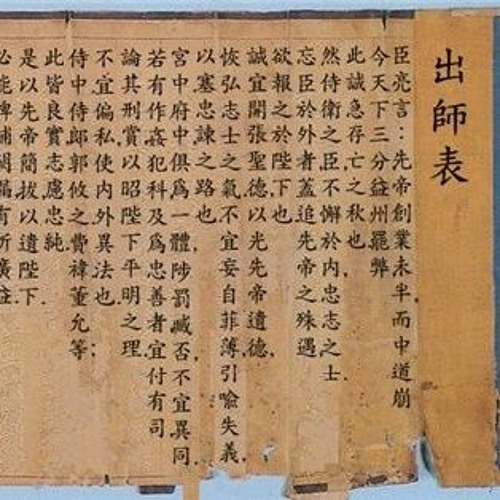 出師表
臣亮言：先帝創業未半，而中道崩
今天下三分，益州罷弊，
此誠急存亡之秋也。
然侍衛之臣，不懈於內，忠志之士，
忘臣於外者，蓋追先帝之殊遇，
欲報之於陛下也。
誠宜開張聖德，以光先帝遺德，
恢弘志士之氣，不宜妄自菲薄，引喻失義，
以塞忠諫之路也。
宮中府中，俱爲一體，陟罰臧否，不宜異同，
若有作姦犯科及爲忠善者，宜付有司，
論其刑賞，以昭陛下平明之理，
不宜偏私，使內外異法也。
侍中侍郎郭攸之費禕董允等；
此皆良實，志慮忠純，
是以先帝簡拔以遺陛下。
必能裨補闕漏，有所廣益。